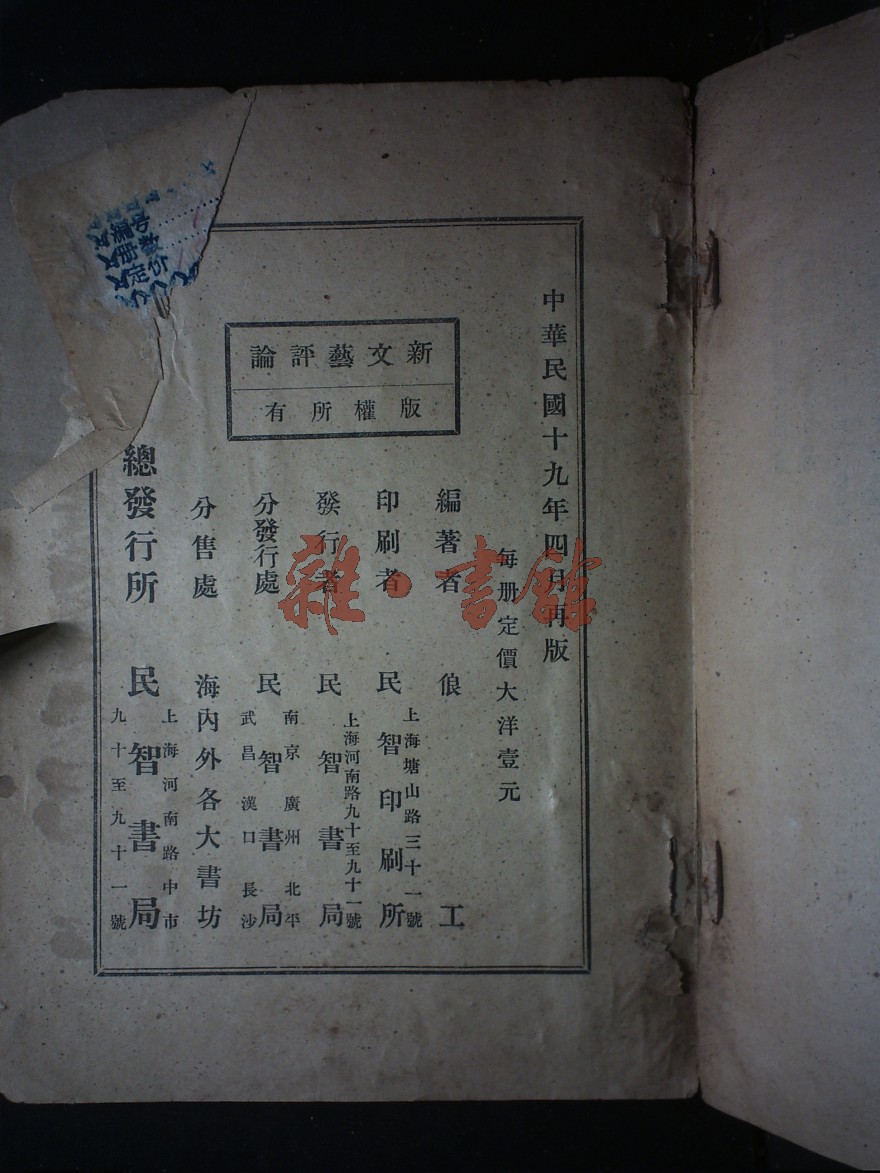 中華民國十九年四月再版
每册定價大洋壹元
新文藝評論
版權所有
編著者 俍工
印刷者 上海塘山路三十一號 民智印刷所
發行者 上海河南路九十至九十一號 民智書局
分發行處 南京廣州北平 民智書局 武昌漢口長沙
分售處 海內外各大書坊
總發行所 上海河南路中市 民智書局 九十至九十一號
雜·書館